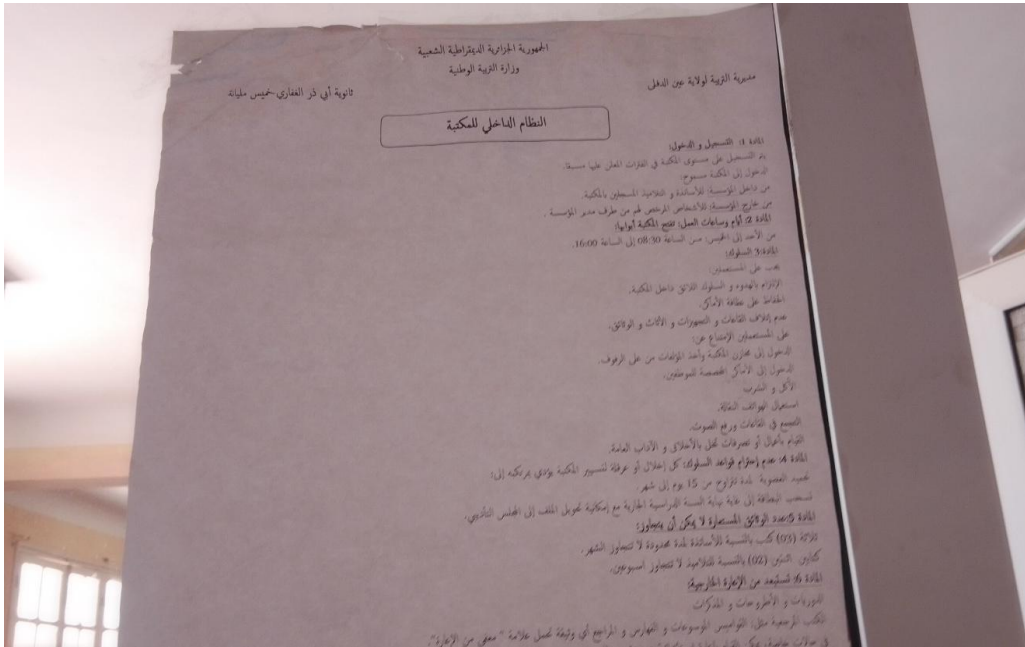 الجمهورية الجزائرية الديمقراطية الشعبية
وزارة التربية الوطنية
مديرية التربية لولاية عين الدفلى
ثانوية أبي ذر الغفاري-خميس مليانة
النظام الداخلي للمكتبة
المادة 1: التسجيل و الدخول:
يتم التسجيل على مستوى المكتبة في الفترات المعلن عليها مسبقا.
الدخول إلى المكتبة مسموح:
من داخل المؤسسة: للأساتذة و التلاميذ المسجلين بالمكتبة.
من خارج المؤسسة: للأشخاص المرخص لهم من طرف مدير المؤسسة .
المادة 2: أيام وساعات العمل: تفتح المكتبة أبوابها:
من الأحد إلى الخميس: من الساعة 08:30 إلى الساعة 16:00.
المادة:3 السلوك:
يجب على المستعملين:
الإلتزام بالهدوء و السلوك اللائق داخل المكتبة.
الحفاظ على نظافة الأماكن.
عدم إتلاف القاعات و التجهيزات و الأثاث و الوثائق.
على المستعملين الإمتناع عن:
الدخول إلى مخازن المكتبة وأخذ المؤلفات من على الرفوف.
الدخول إلى الأماكن المخصصة للموظفين.
الأكل و الشرب
استعمال الهواتف النقالة.
التجمع في القاعات ورفع الصوت.
القيام بأعمال أو تصرفات تخل بالأخلاق و الآداب العامة.
المادة 4: عدم إحترام قواعد السلوك: كل إخلال أو عرقلة لتسيير المكتبة يؤدي بمرتكبه إلى:
تجميد العضوية لمدة تتراوح من 15 يوم إلى شهر.
تسحب البطاقة إلى غاية نهاية السنة الدراسية الجارية مع إمكانية تحويل الملف إلى المجلس التأديبي.
المادة 5:عدد الوثائق المستعارة لا يمكن أن يتجاوز:
ثلاثة (03) كتب بالنسبة للأساتذة لمدة محدودة لا تتجاوز الشهر.
كتابين اثنين (02) بالنسبة للتلاميذ لا تتجاوز اسبوعين.
المادة 6: تستبعد من الإعارة الخارجية:
الدوريات و الأطروحات و المذكرات
الكتب المرجعية مثل: القواميس الموسوعات و الفهارس و المراجع أي وثيقة تحمل علامة " معفى من الإعارة".